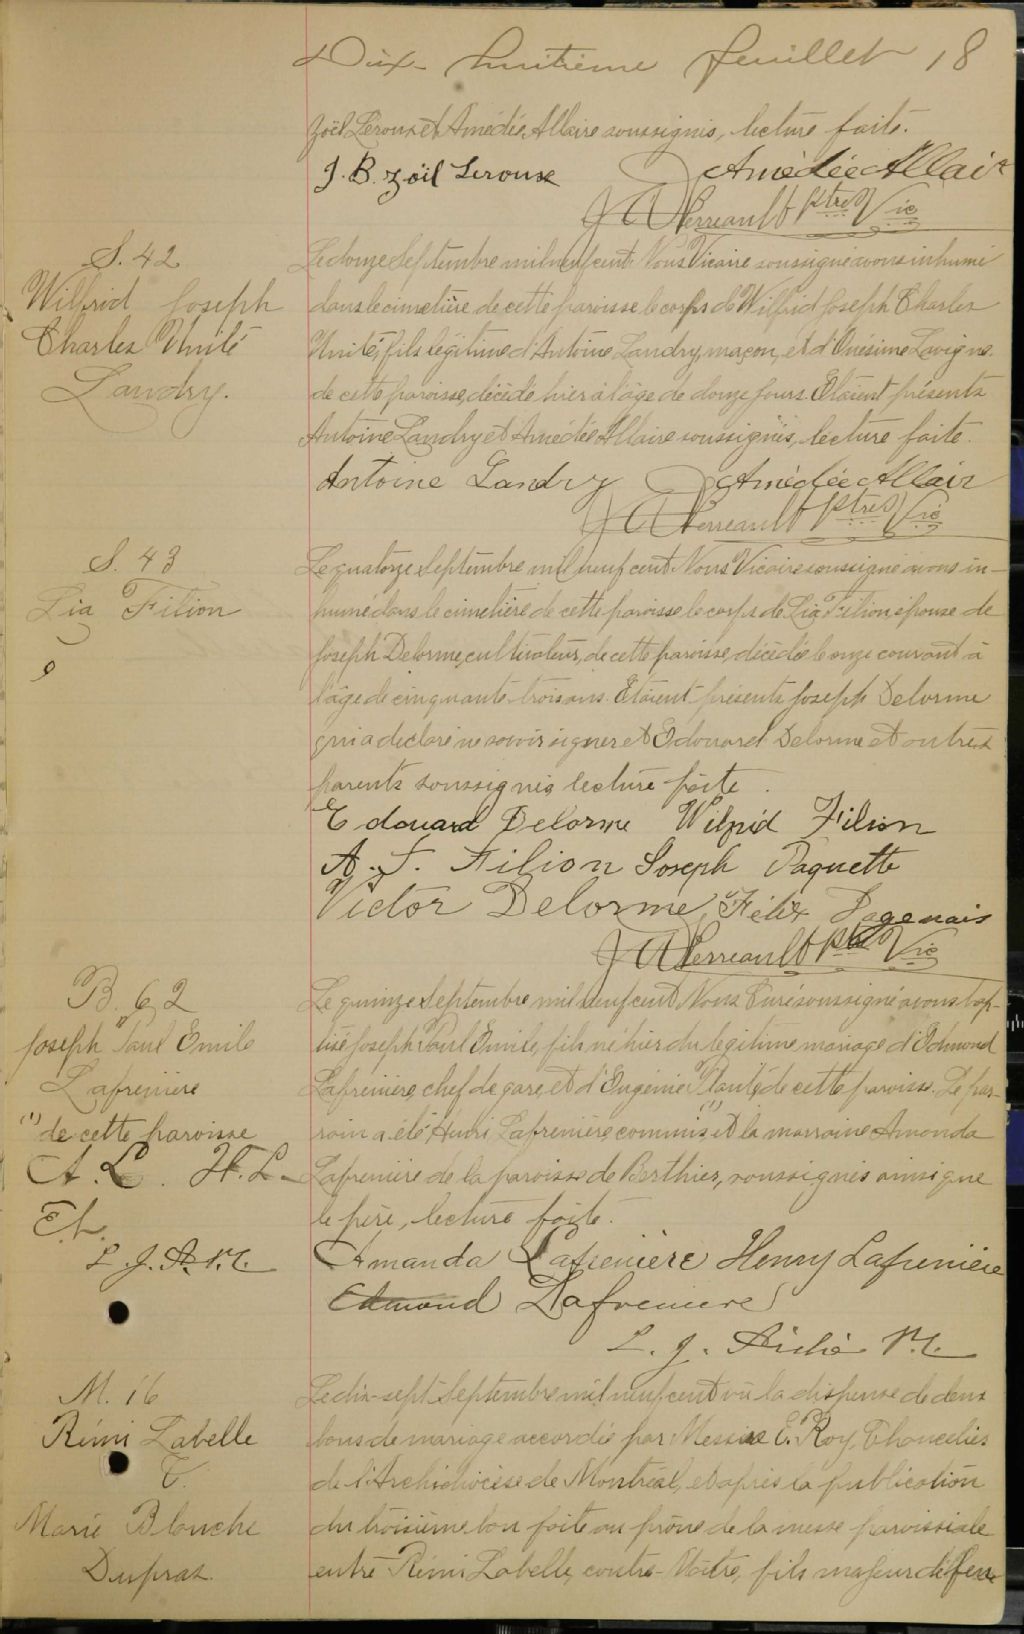 Dix-huitième feuillet 18
Zoël Leroux et Amédée Allaire soussignés, lecture faite.
J. B. Zoël Leroux Amédée Allair
J A Perreault Ptre Vic
S. 42
Wilfrid Joseph
Charles Unité
Landry.
Le douze Septembre mil neuf cent Nous Vicaire soussigné avons inhumé
dans le cimetière de cette paroisse le corps de Wilfrid Joseph Charles
Unité, fils légitime d'Antoine Landry, maçon, et d'Onésime Lavigne
de cette paroisse, décédé hier à l'âge de douze jours. Etaient présents
Antoine Landry et Amédée Allaire soussignés, lecture faite.
Antoine Landry Amédée Allair
J A Perreault Ptre Vic
S. 43
Lia Filion
9
Le quatorze Septembre mil neuf cent Nous Vicaire soussigné avons in-
humé dans le cimetière de cette paroisse le corps de Lia Filion, épouse de
Joseph Delorme, cultivateur, de cette paroisse, décédée le onze courant à
l'âge de cinquante-trois ans. Etaient présents Joseph Delorme
qui a déclaré ne savoir signer et Edouard Delorme et autres
parents soussignés lecture faite.
Edouard Delorme Wilfrid Filion
A. F. Filion Joseph Paquette
Victor Delorme, Félix Dagenais
J A Perreault Ptre Vic
B. 62
Joseph Paul Emile
Lafrenière
(1) de cette paroisse
A. L. H. L
E. L.
L. J. A. Ptr.
Le quinze Septembre mil neuf cent Nous Curé soussigné avons bap-
tisé Joseph Paul Emile, fils né hier du légitime mariage d'Edmond
Lafrenière, chef de gare, et d'Eugénie Plante, de cette paroisse. Le par-
rain a été Henri Lafrenière, commis, (1) et la marraine Amanda
Lafrenière de la paroisse de Berthier, soussignés ainsi que
le père, lecture faite.
Amanda Lafrenière Henry Lafrenière
Edmond Lafreniere
L. J.
M. 16
Rémi Labelle
&
Marie Blanche
Dupras.
Le dix-sept Septembre mil neuf cent vu la dispense de deux
bans de mariage accordée par Messire E. Roy, Chancelier
de l'Archidiocèse de Montréal, et après la publication
du troisième ban faite au prône de la messe paroissiale
entre Rémi Labelle, contre-Maître, fils majeur de feu